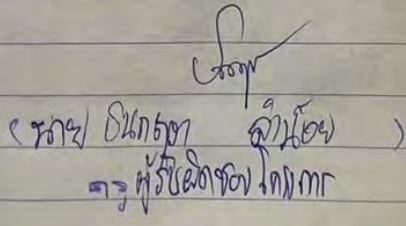 (นาย ธนกฤต ลำน้อย)
ครู ผู้รับผิดชอบโครงการ